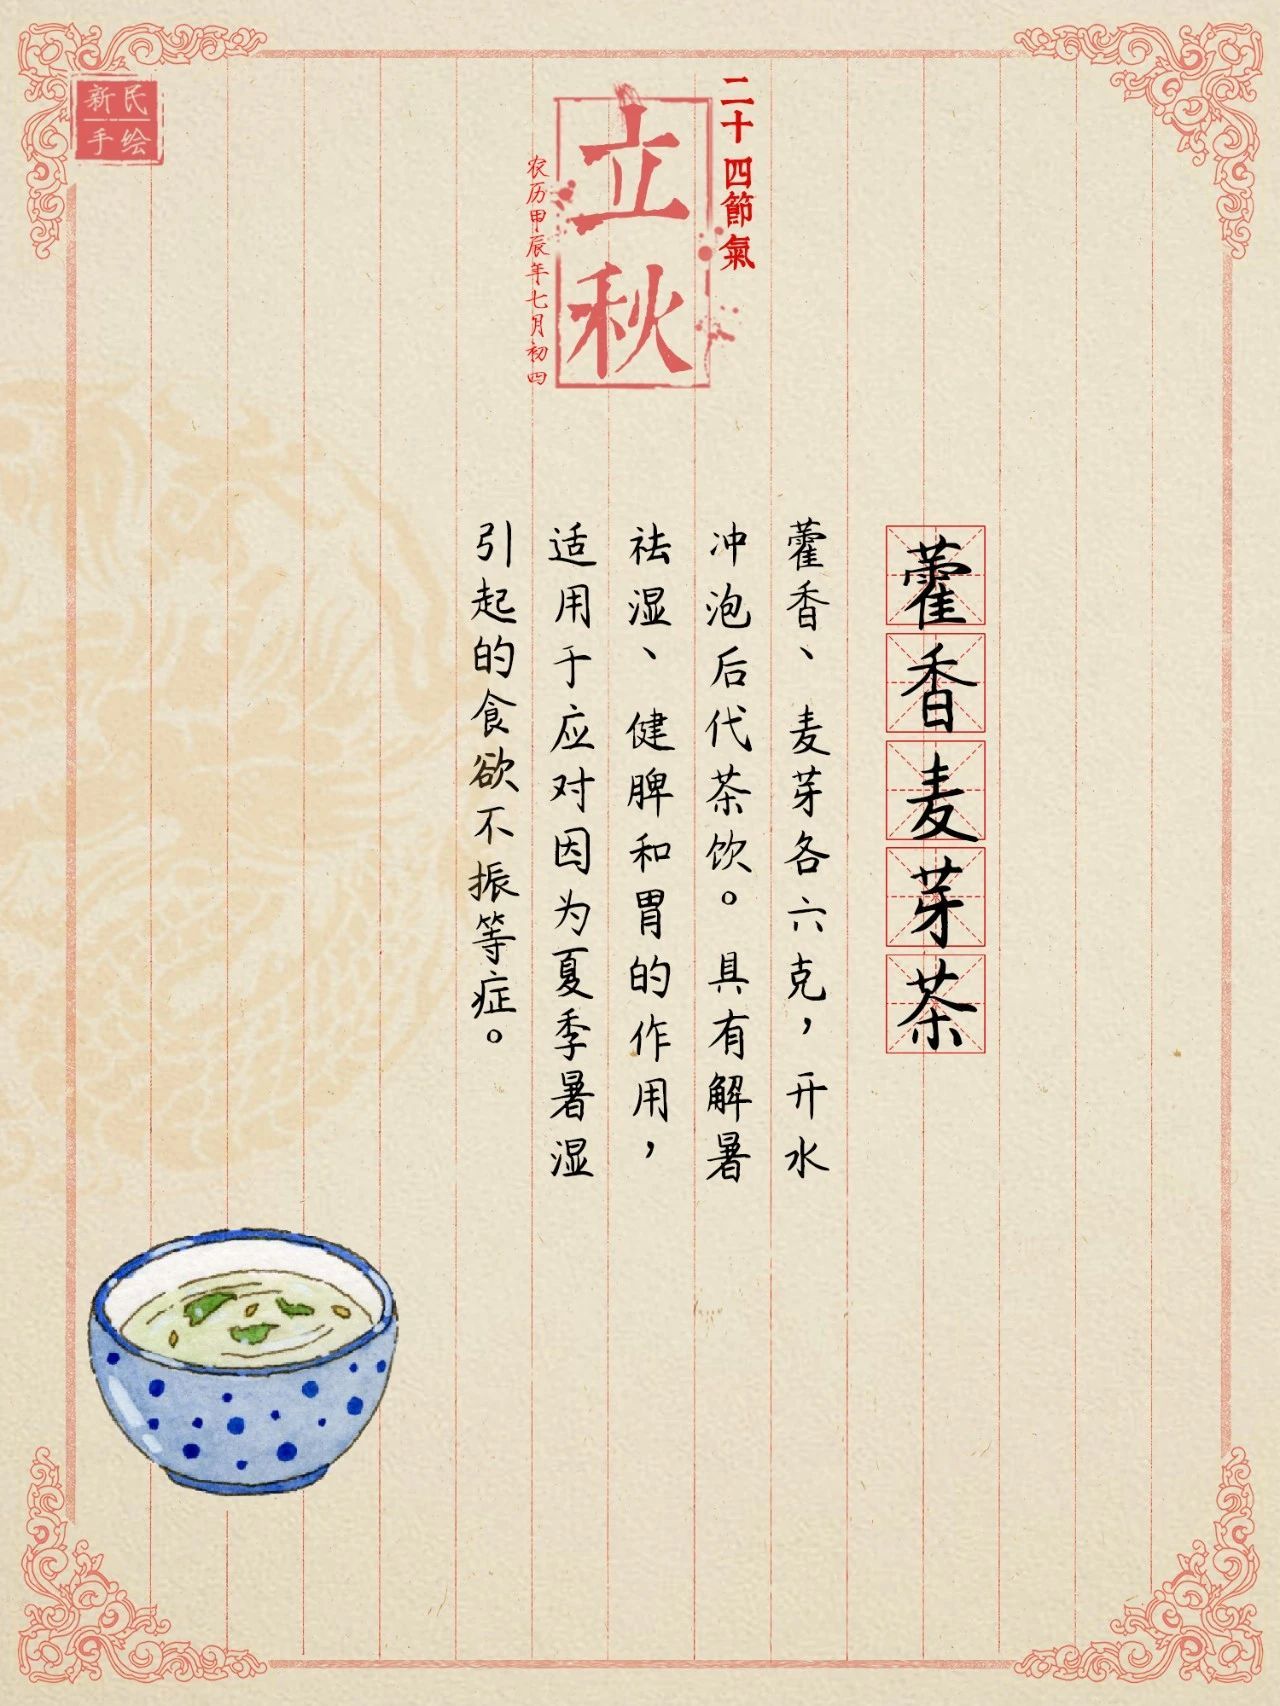 新民
手绘
二十四節氣
立秋
农历甲辰年七月初四
藿香麦芽茶
藿香、麦芽各六克，开水
冲泡后代茶饮。具有解暑
祛湿、健脾和胃的作用，
适用于应对因为夏季暑湿
引起的食欲不振等症。